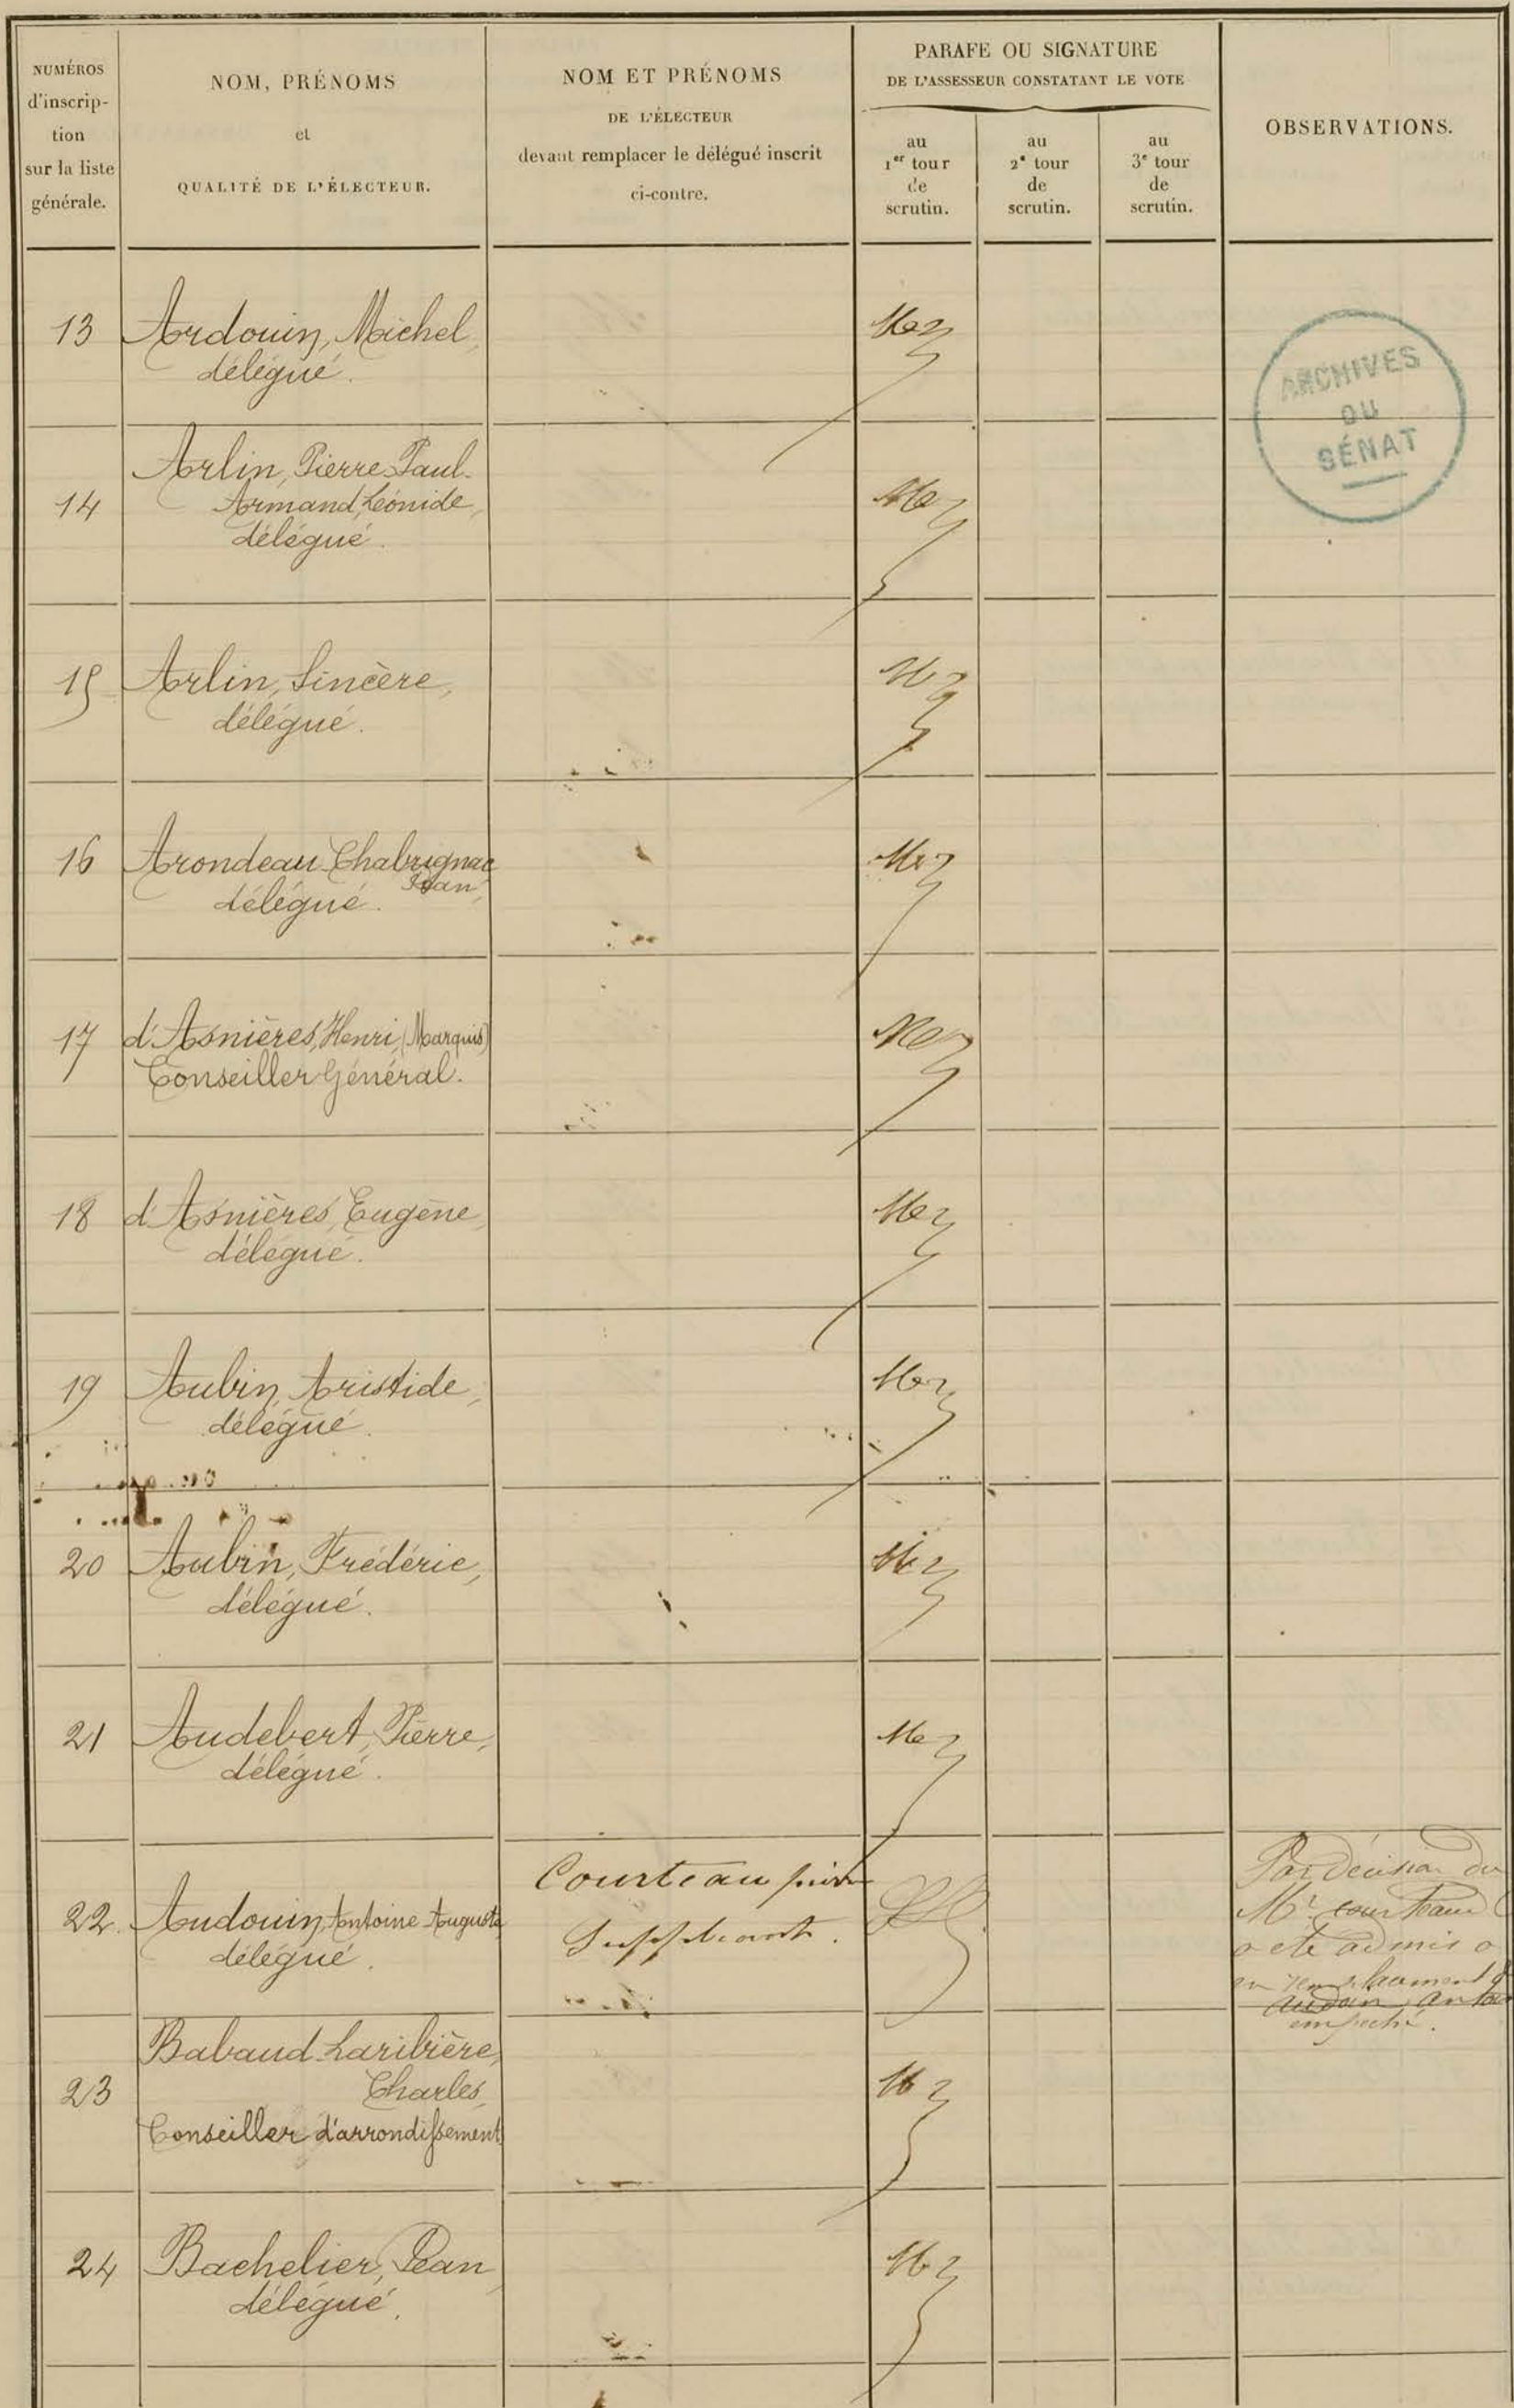 NUMÉROS
d'inscrip-
tion
sur la liste
générale.
NOM, PRÉNOMS
et
QUALITÉ DE L'ÉLECTEUR.
NOM ET PRÉNOMS
DE L'ÉLECTEUR
devant remplacer le délégué inscrit
ci-contre.
PARAFE OU SIGNATURE
DE L'ASSESSEUR CONSTATANT LE VOTE
au
1er tour
de
scrutin.
au
2e tour
de
scrutin.
au
3e tour
de
scrutin.
OBSERVATIONS.
13 Ardouin, Michel,
délégué.
ARCHIVES
DU
SÉNAT
Arlin, Pierre Paul-
14 Armand, Léonide,
délégué.
15 Arlin, Sincère,
délégué.
16 Arondeau-Chabrignac
Jean,
délégué.
17 d'Asnières, Henri, (Marquis)
Conseiller Général.
18 d'Asnières, Eugène,
délégué.
19 Aubin, Aristide,
délégué.
20 Aubin, Frédéric,
délégué.
21 Audebert, Pierre,
délégué.
22. Audouin, Antoine Auguste,
délégué.
Courteau
Suppléant.
Par décision du
Mr courteau
a été admis a
en remplacement d
audoin anto
empeché.
Babaud-Laribière,
23 Charles,
Conseiller d'arrondissement
24 Bachelier, Jean
délégué.